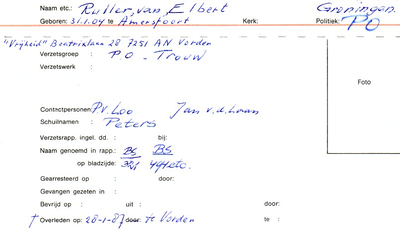 Naam etc.: Ruller, van Elbert Groningen
Geboren: 31.1.04 te Amersfoort Kerk: Politiek: PO
"Vrijheid" Beatrixlaan 28 7251 AN Vorden
Verzetsgroep : P.O - Trouw
Verzetswerk :
Foto
Contractpersonen: P v. Loo Jan v.d.
Schuilnaam : Peters
Verzetsrapp. ingel. dd. : bij:
Naam genoemd in rapp.: BS BS
op bladzijde: 491 etc.
Gearresteerd op : door:
Gevangen gezeten in :
Bevrijd op : uit : door:
† Overleden op: 28-1-87 door: te Vorden te :